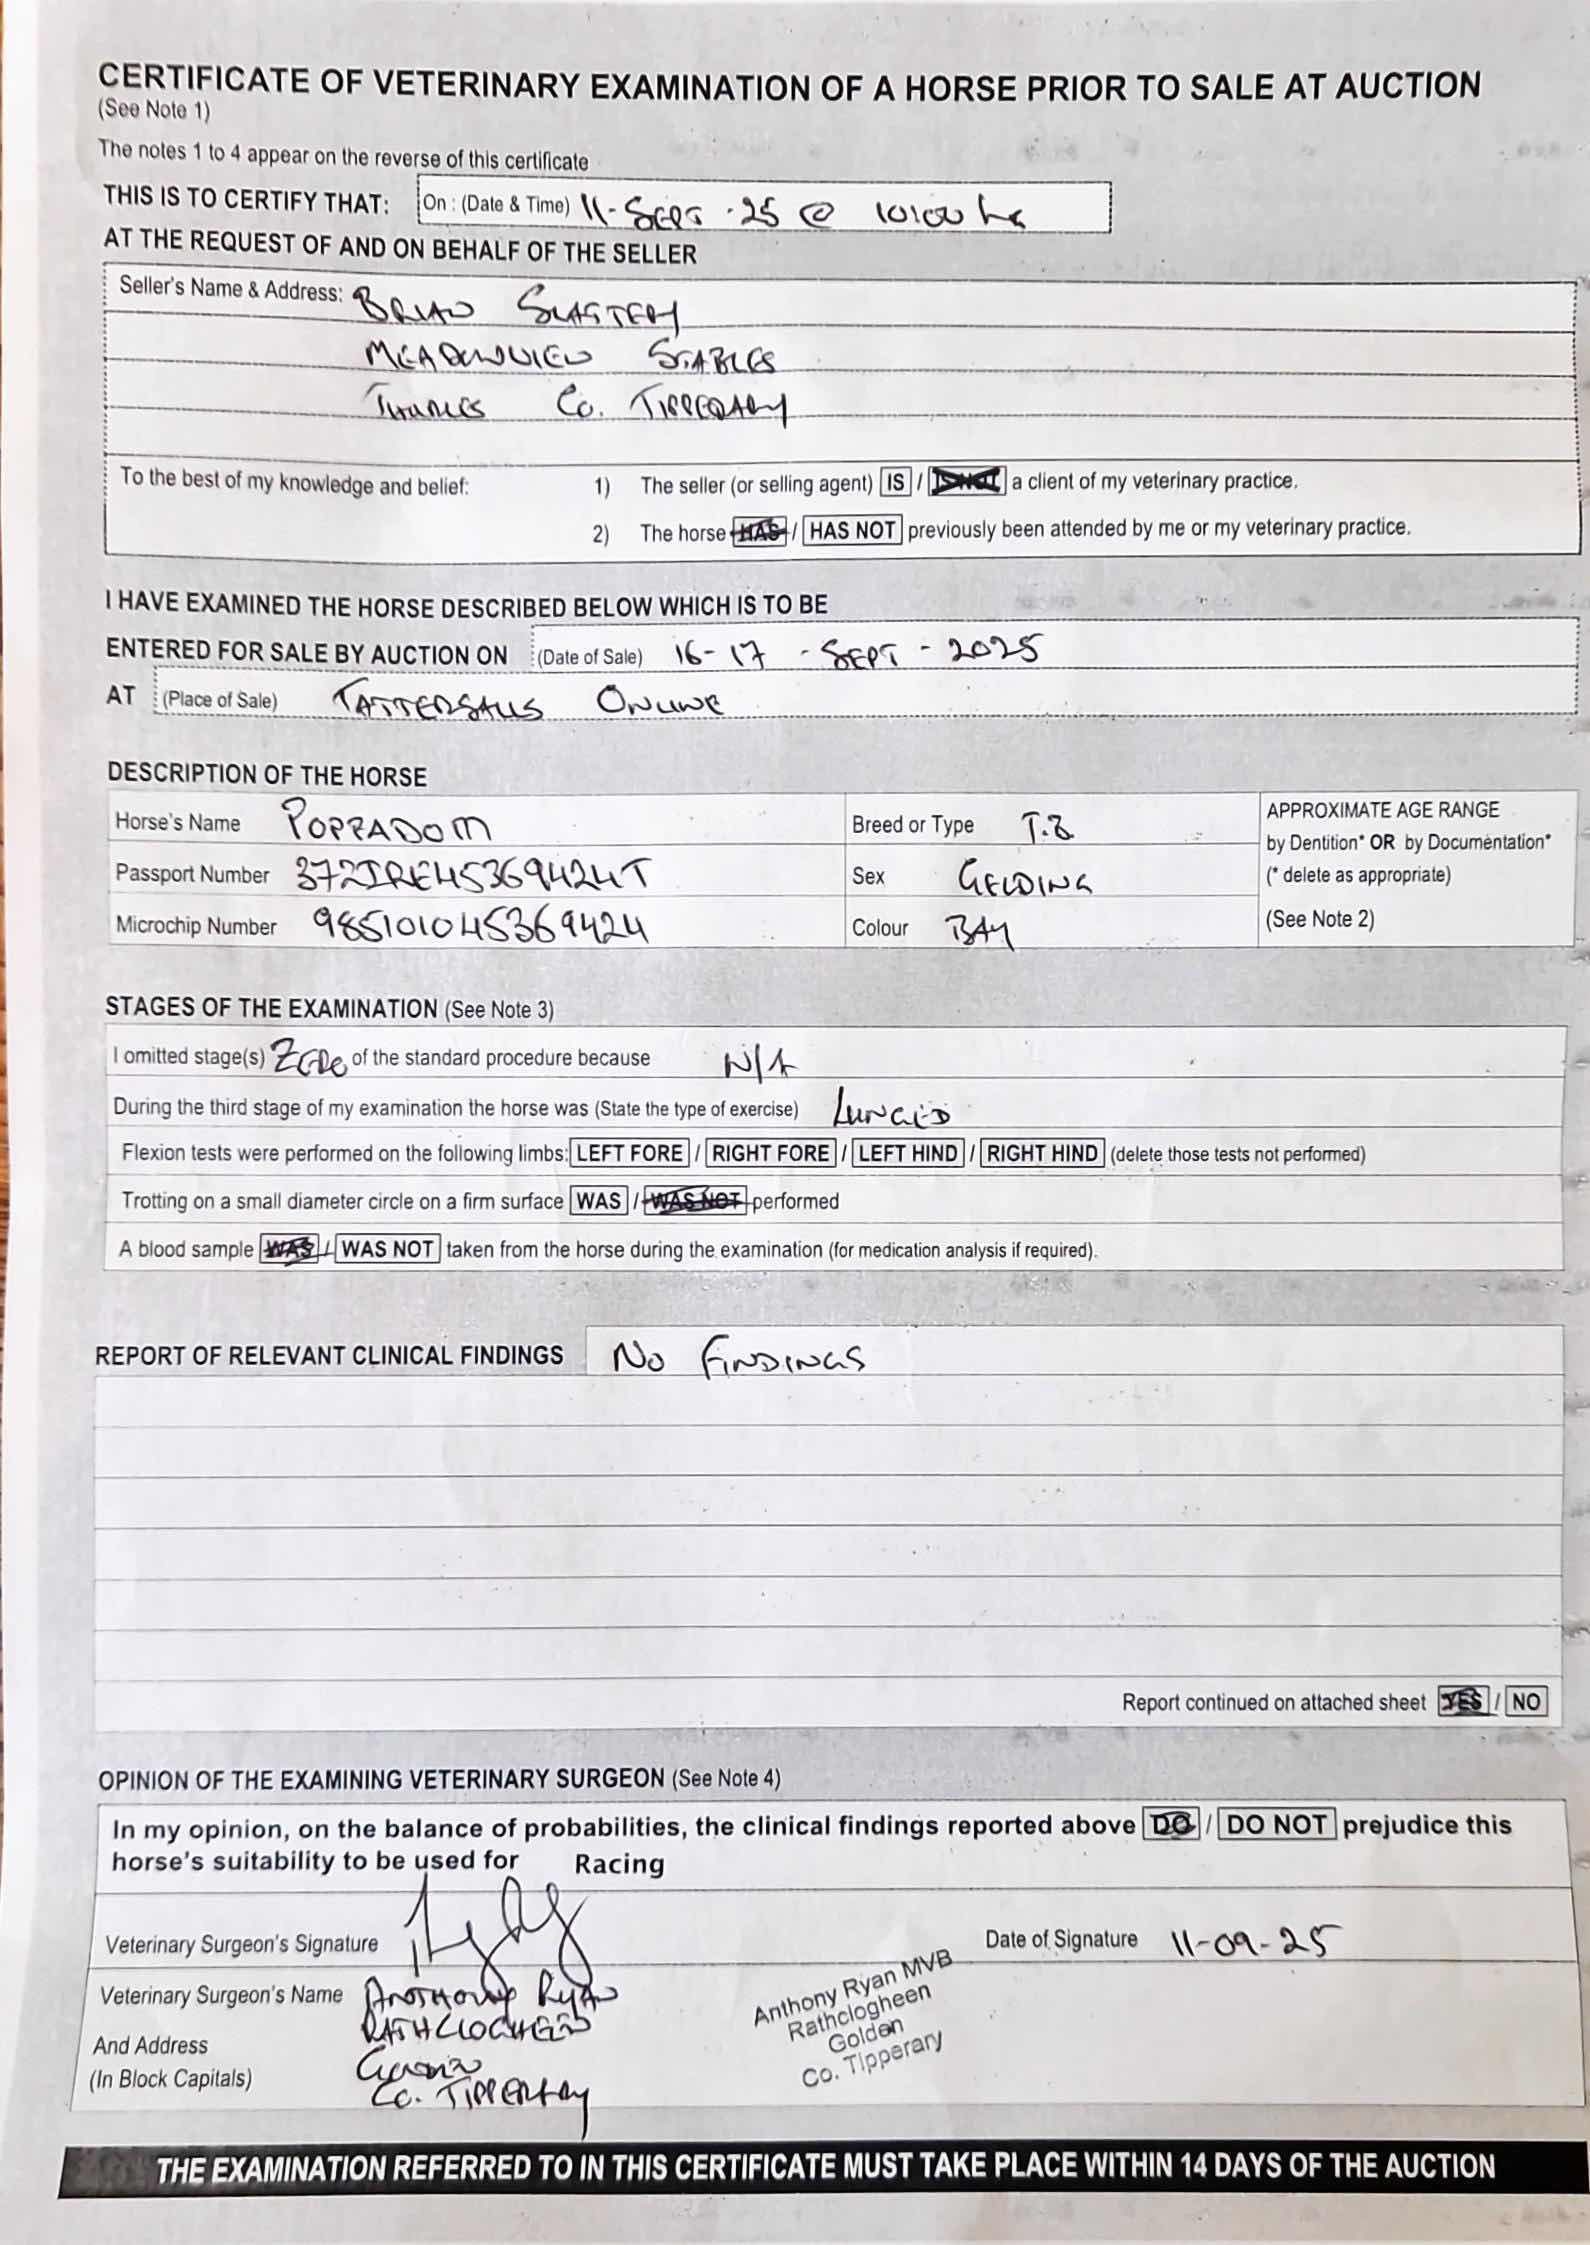 CERTIFICATE OF VETERINARY EXAMINATION OF A HORSE PRIOR TO SALE AT AUCTION
(See Note 1)
The notes 1 to 4 appear on the reverse of this certificate
THIS IS TO CERTIFY THAT: On : (Date & Time) 11-SEPT-25 @ 10:00 hrs
AT THE REQUEST OF AND ON BEHALF OF THE SELLER
Seller's Name & Address: BRIAN SLATTERY
MEADOWVIEW STABLES
THURLES CO. TIPPERARY
To the best of my knowledge and belief: 1) The seller (or selling agent) IS / IS NOT a client of my veterinary practice.
2) The horse HAS / HAS NOT previously been attended by me or my veterinary practice.
I HAVE EXAMINED THE HORSE DESCRIBED BELOW WHICH IS TO BE
ENTERED FOR SALE BY AUCTION ON (Date of Sale) 16-17 - SEPT - 2025
AT (Place of Sale) TATTERSALLS ONLINE
DESCRIPTION OF THE HORSE
Horse's Name POPPADOM Breed or Type T.B APPROXIMATE AGE RANGE
by Dentition* OR by Documentation*
Passport Number 372IRE45369424T Sex GELDING (* delete as appropriate)
Microchip Number 985101045369424 Colour BAY (See Note 2)
STAGES OF THE EXAMINATION (See Note 3)
I omitted stage(s) ZERO of the standard procedure because N/A
During the third stage of my examination the horse was (State the type of exercise) LUNGED
Flexion tests were performed on the following limbs: LEFT FORE / RIGHT FORE / LEFT HIND / RIGHT HIND (delete those tests not performed)
Trotting on a small diameter circle on a firm surface WAS / WAS NOT performed
A blood sample WAS / WAS NOT taken from the horse during the examination (for medication analysis if required).
REPORT OF RELEVANT CLINICAL FINDINGS NO FINDINGS
Report continued on attached sheet YES / NO
OPINION OF THE EXAMINING VETERINARY SURGEON (See Note 4)
In my opinion, on the balance of probabilities, the clinical findings reported above DO / DO NOT prejudice this
horse's suitability to be used for Racing
Veterinary Surgeon's Signature Date of Signature 11-09-25
Veterinary Surgeon's Name ANTHONY RYAN
And Address RATHCLOGHEEN
(In Block Capitals) GOLDEN
CO. TIPPERARY
Anthony Ryan MVB
Rathclogheen
Golden
Co. Tipperary
THE EXAMINATION REFERRED TO IN THIS CERTIFICATE MUST TAKE PLACE WITHIN 14 DAYS OF THE AUCTION